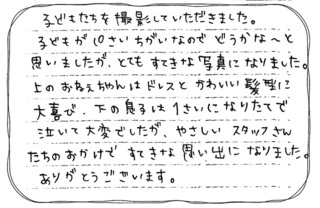 子どもたちを撮影していただきました。
子どもが10さいちがいなのでどうかな〜と
思いましたが、とてもすてきな写真になりました。
上のおねえちゃんはドレスとかわいい髪型に
大喜び、下の息子は1さいになりたてで
泣いて大変でしたが、やさしいスタッフさん
たちのおかげですてきな思い出になりました。
ありがとうございます。